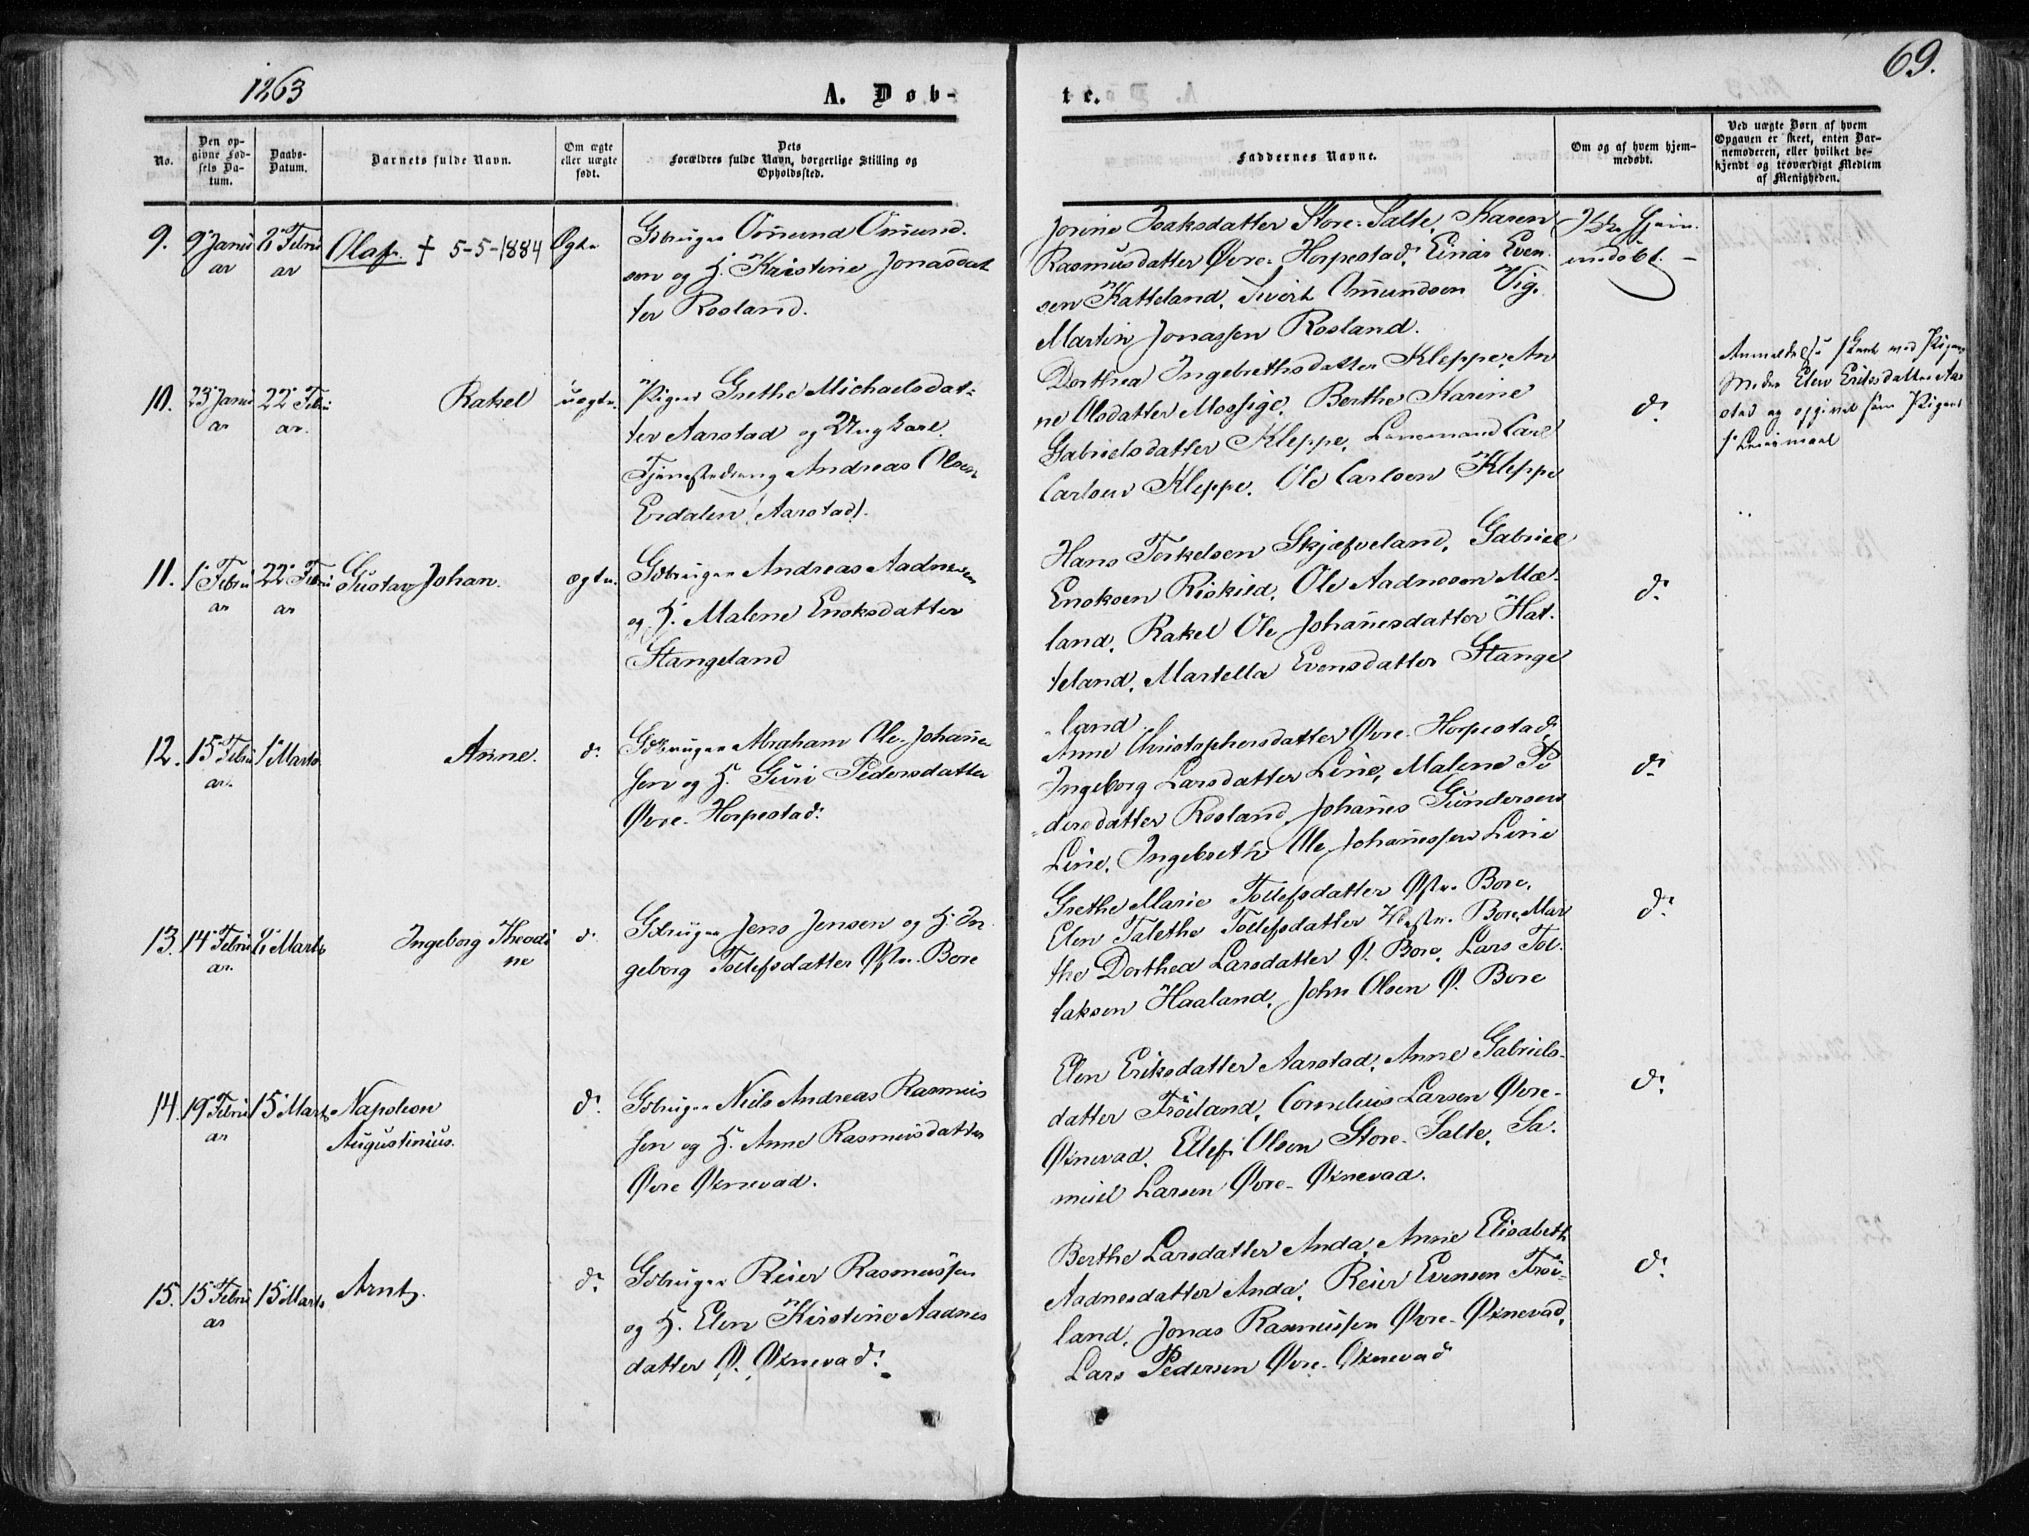 1863
A. Døb-
te.
69.
No.
Den op-
givne Fød-
sels Da-
tum.
Daabs-
Datum.
Barnets fulde Navn.
Om ægte
eller uægte
født.
Dets
Forældres fulde Navn, borgerlige Stilling og
Opholdssted.
Faddernes Navne.
Om og af hvem hjem-
medøbt.
Ved uægte Børn af hvem
Opgaven er skeet, enten Bar-
nemoderen, eller hvilket be-
kjendt og troværdigt Medlem
af Menigheden.
9.
9' Janu
ar
Febru
ar
Olaf. † 5-5-1884
Ægte
Gbruger Omund Omund-
sen og H. Kristine Jonasdat
ter Rosland.
Jorine Isaksdatter Store-Salte, Karen
Rasmusdatter Øvre-Horpestad, Einar Even-
sen Katteland, Sivert Omundsen Vig,
Martin Jonassen Rosland.
Ikke hjem-
medøbt.
10.
23' Janu
ar
22' Febru
ar.
Rakel
uægte
Pigen Grethe Michaelsdat-
ter Aarstad og Ungkarl
Tjenestedreng Andreas Olsen
Erdalen (Aarstad).
Dorthea Ingebrethsdatter Kleppe, An
ne Olsdatter Mossige, Berthe Karine
Gabrielsdatter Kleppe, Lensmand Carl
Carlsen Kleppe. Ole Carlsen Kleppe
do
Anmeldelse skeet ved Pigens
Moder Elen Eriksdatter Aar
stad og opgivet som Pigens
1' Leiermaal
11.
1' Febru
ar
22' Febru
ar
Gustav Johan.
ægte.
Gbruger Andreas Aadnesen
og H. Malene Enoksdatter
Stangeland
Hans Torkelsen Skjæfveland, Gabriel
Enoksen Riskild, Ole Aadnesen Mæ-
land, Rakel Ole Johanesdatter Hat-
teland, Martella Evensdatter Stange
land.
do
12.
15' Febru
ar.
1' Marts
Anne.
do
Gbruger Abraham Ole Johane-
sen og H. Guri Pedersdatter
Øvre-Horpestad.
Anne Christophersdatter Øvre-Horpestad,
Ingeborg Larsdatter Line, Malene Pe
dersdatter Rosland, Johanes Gundersen
Line, Ingebreth Ole Johanessen Line
do
13.
14' Febru
ar.
Marts
Ingeborg Theodi
ne
do
Gbruger Jens Jensen og H. In
geborg Tollefsdatter Østre-Bore
Grethe Marie Tollefsdatter Østre Bore,
Elen Talethe Tollefsdatter Vestre-Bore, Mar
the Dorthea Larsdatter Ø. Bore, Lars Tol-
laksen Haaland, John Olsen Ø. Bore
do
14.
19' Febru
ar
15' Marts
Napoleon
Augustinius.
do
Gbruger Niels Andreas Rasmus
sen og H. Anne Rasmusdatter
Øvre Øxnevad.
Elen Eriksdatter Aarstad, Anne Gabriels-
datter Frøiland, Cornelius Larsen Øvre-
Øxnevad, Ellef Olsen Store-Salte, Sa-
muel Larsen Øvre-Øxnevad.
do
15.
15' Febru
ar
15' Marts
Arnt.
do
Gbruger Reier Rasmussen
og H. Elen Kirstine Aadnes
datter Ø. Øxnevad.
Berthe Larsdatter Anda, Anne Elisabeth
Aadnesdatter Anda, Reier Evensen Frøi-
land, Jonas Rasmussen Øvre-Øxnevad,
Lars Pedersen Øvre-Øxnevad
do